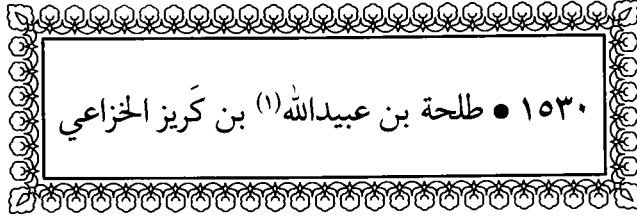 ١٥٣٠ • طلحة بن عبيدالله(١) بن كَريز الخزاعي